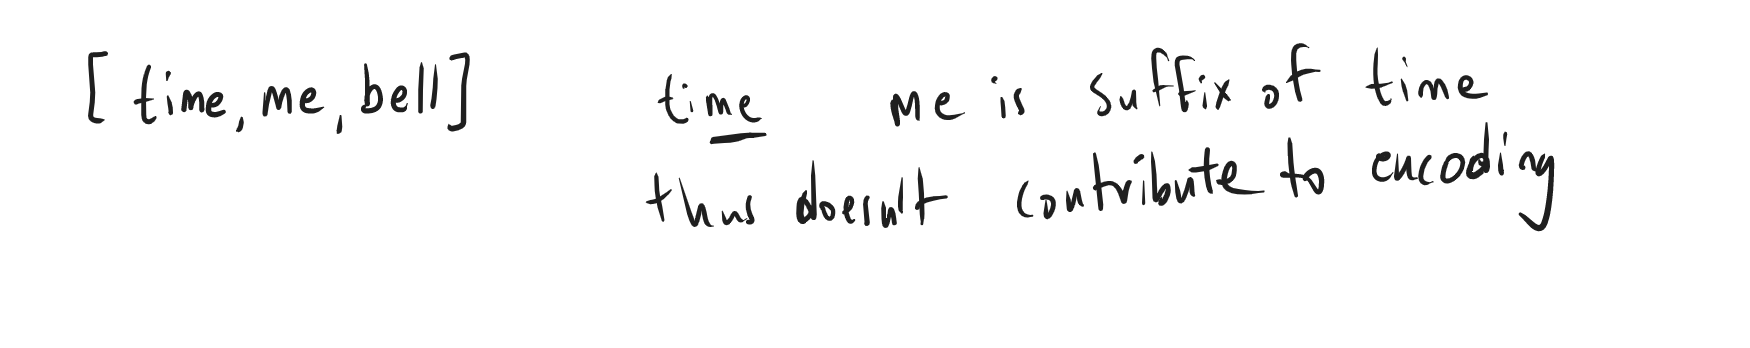 [time, me, bell]
time me is suffix of time
thus doesn't contribute to encoding